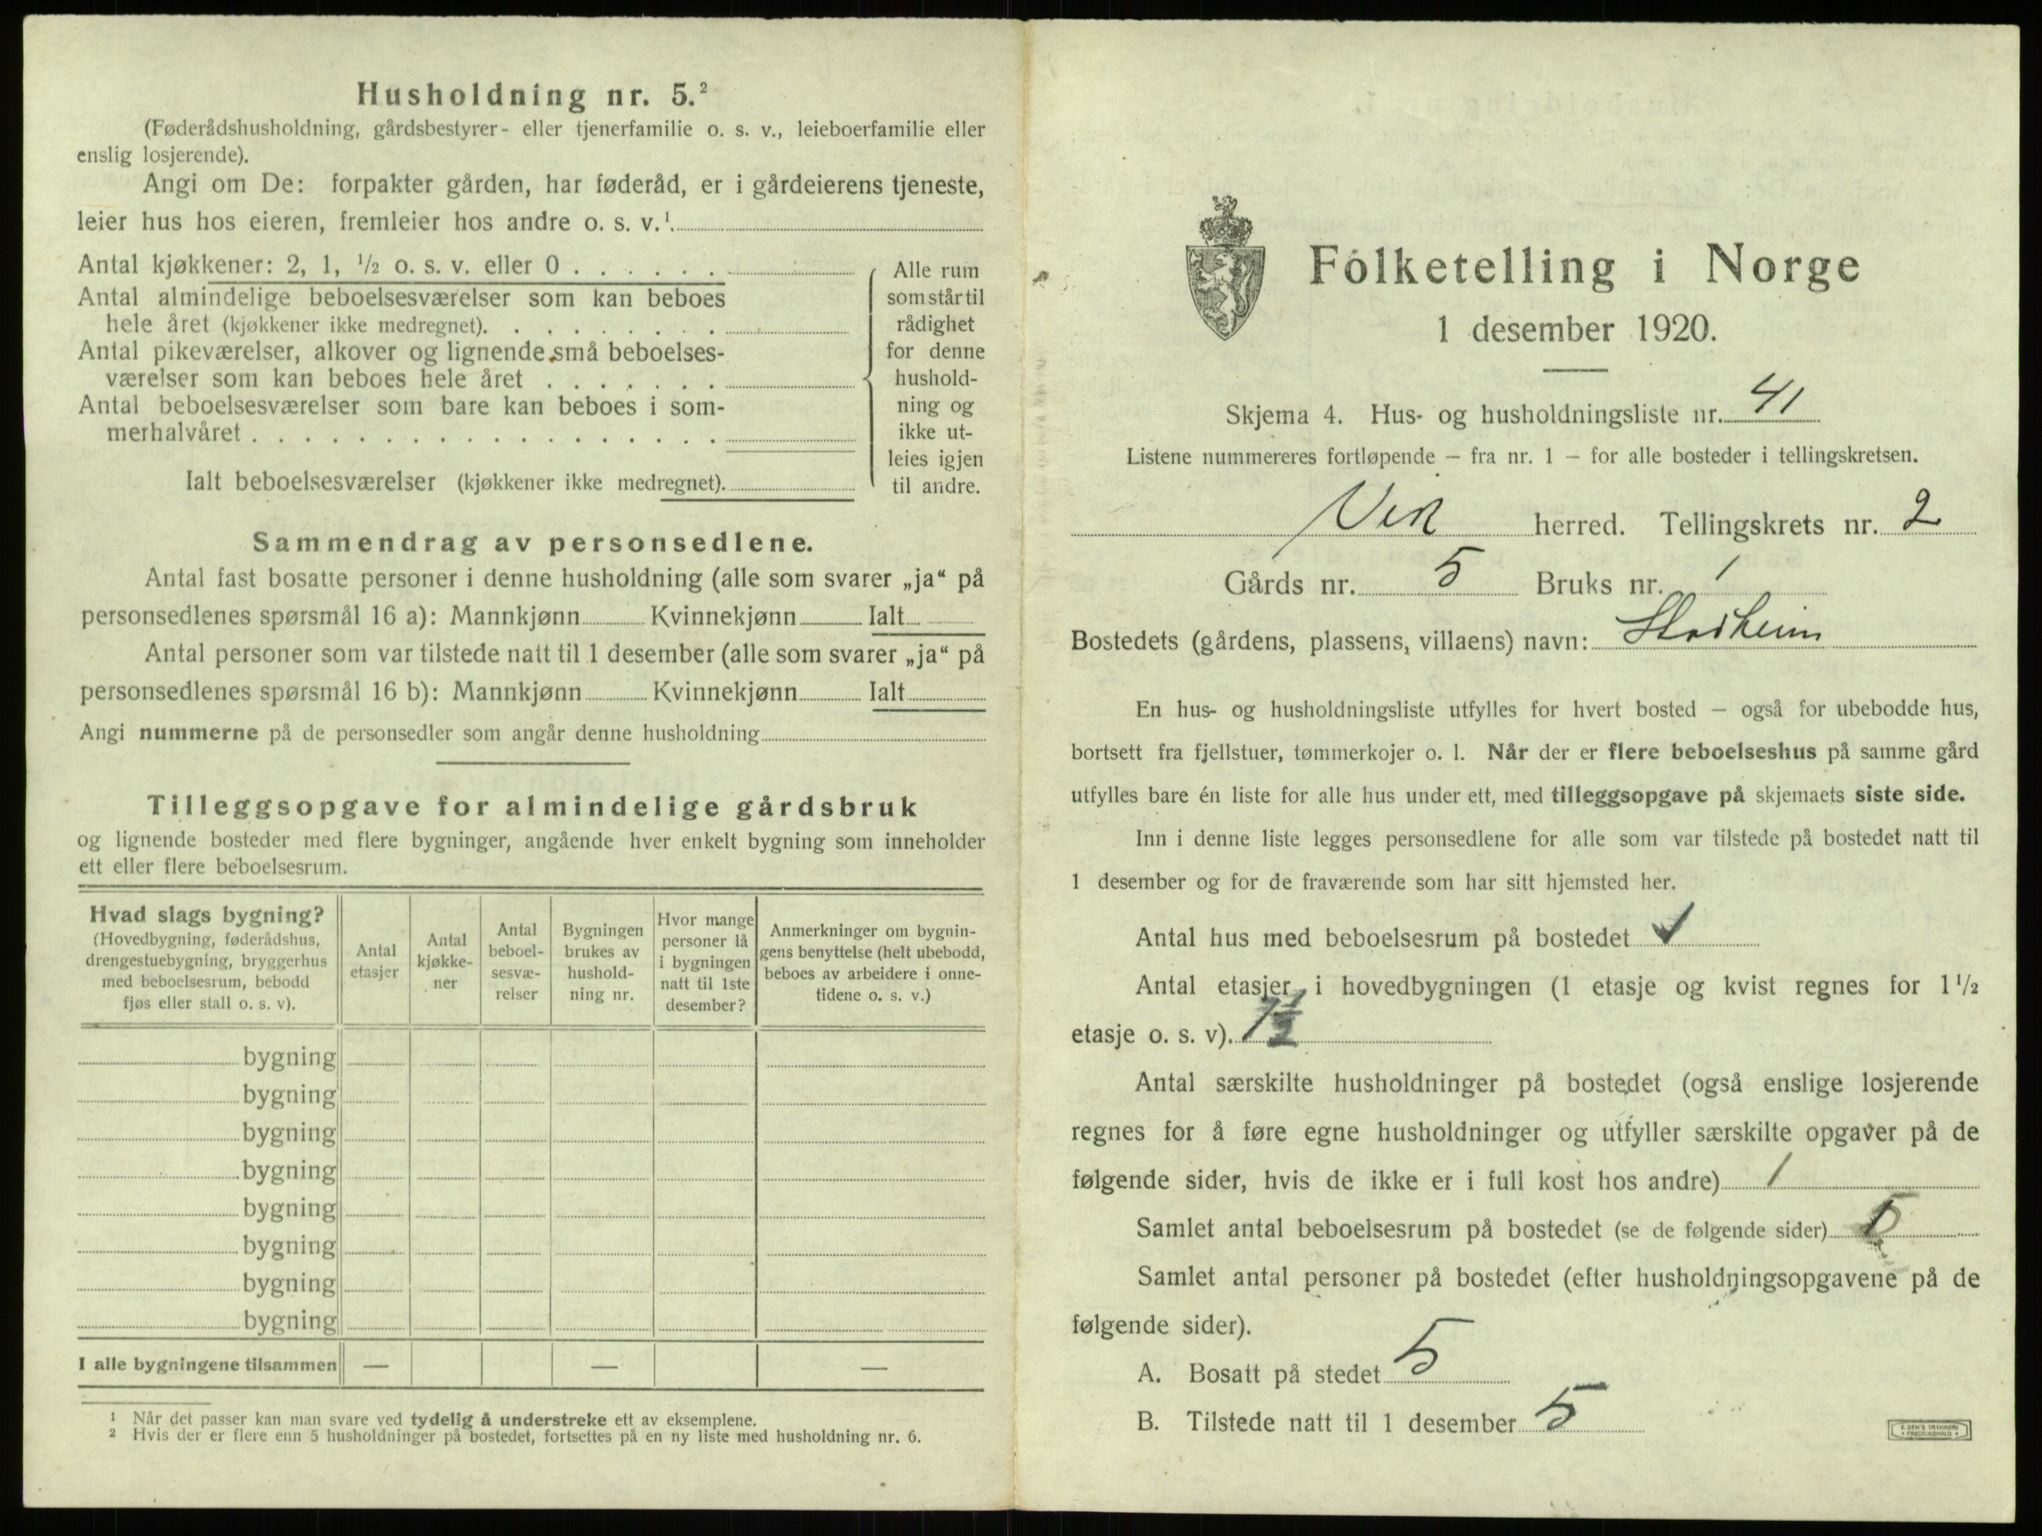 Husholdning nr. 5.²
(Føderådshusholdning, gårdsbestyrer- eller tjenerfamilie o. s. v., leieboerfamilie eller
enslig losjerende).
Angi om De: forpakter gården, har føderåd, er i gårdeierens tjeneste,
leier hus hos eieren, fremleier hos andre o. s. v.¹
Antal kjøkkener: 2, 1, ½ o. s. v. eller 0 . . . . . .
Antal almindelige beboelsesværelser som kan beboes
hele året (kjøkkener ikke medregnet). . . . . . . .
Antal pikeværelser, alkover og lignende små beboelses-
værelser som kan beboes hele året . . . . . . .
Antal beboelsesværelser som bare kan beboes i som-
merhalvåret . . . . . . . . . . . . . . . . . .
Ialt beboelsesværelser (kjøkkener ikke medregnet).
Alle rum
som står til
rådighet
for denne
hushold-
ning og
ikke ut-
leies igjen
til andre.
Sammendrag av personsedlene.
Antal fast bosatte personer i denne husholdning (alle som svarer „ja“ på
personsedlenes spørsmål 16 a): Mannkjønn Kvinnekjønn Ialt
Antal personer som var tilstede natt til 1 desember (alle som svarer „ja“ på
personsedlenes spørsmål 16 b): Mannkjønn Kvinnekjønn Ialt
Angi nummerne på de personsedler som angår denne husholdning
Tilleggsopgave for almindelige gårdsbruk
og lignende bosteder med flere bygninger, angående hver enkelt bygning som inneholder
ett eller flere beboelsesrum.
Hvad slags bygning?
(Hovedbygning, føderådshus,
drengestuebygning, bryggerhus
med beboelsesrum, bebodd
fjøs eller stall o. s. v).
Antal
etasjer
Antal
kjøkke-
ner
Antal
beboel-
sesvæ-
relser
Bygningen
brukes av
hushold-
ning nr.
Hvor mange
personer lå
i bygningen
natt til 1ste
desember?
Anmerkninger om bygnin-
gens benyttelse (helt ubebodd,
beboes av arbeidere i onne-
tidene o. s. v.)
bygning
bygning
bygning
bygning
bygning
bygning
bygning
bygning
I alle bygningene tilsammen — — —
¹ Når det passer kan man svare ved tydelig å understreke ett av eksemplene.
² Hvis der er flere enn 5 husholdninger på bostedet, fortsettes på en ny liste med husholdning nr. 6.
Folketelling i Norge
1 desember 1920.
Skjema 4. Hus- og husholdningsliste nr. 41
Listene nummereres fortløpende – fra nr. 1 – for alle bosteder i tellingskretsen.
Vik herred. Tellingskrets nr. 2
Gårds nr. 5 Bruks nr. 1
Bostedets (gårdens, plassens, villaens) navn:
En hus- og husholdningsliste utfylles for hvert bosted – også for ubebodde hus,
bortsett fra fjellstuer, tømmerkojer o. l. Når der er flere beboelseshus på samme gård
utfylles bare én liste for alle hus under ett, med tilleggsopgave på skjemaets siste side.
Inn i denne liste legges personsedlene for alle som var tilstede på bostedet natt til
1 desember og for de fraværende som har sitt hjemsted her.
Antal hus med beboelsesrum på bostedet 1
Antal etasjer i hovedbygningen (1 etasje og kvist regnes for 1½
etasje o. s. v). 1½
Antal særskilte husholdninger på bostedet (også enslige losjerende
regnes for å føre egne husholdninger og utfyller særskilte opgaver på de
følgende sider, hvis de ikke er i full kost hos andre) 1
Samlet antal beboelsesrum på bostedet (se de følgende sider)
Samlet antal personer på bostedet (efter husholdningsopgavene på de
følgende sider).
A. Bosatt på stedet 5
B. Tilstede natt til 1 desember 5